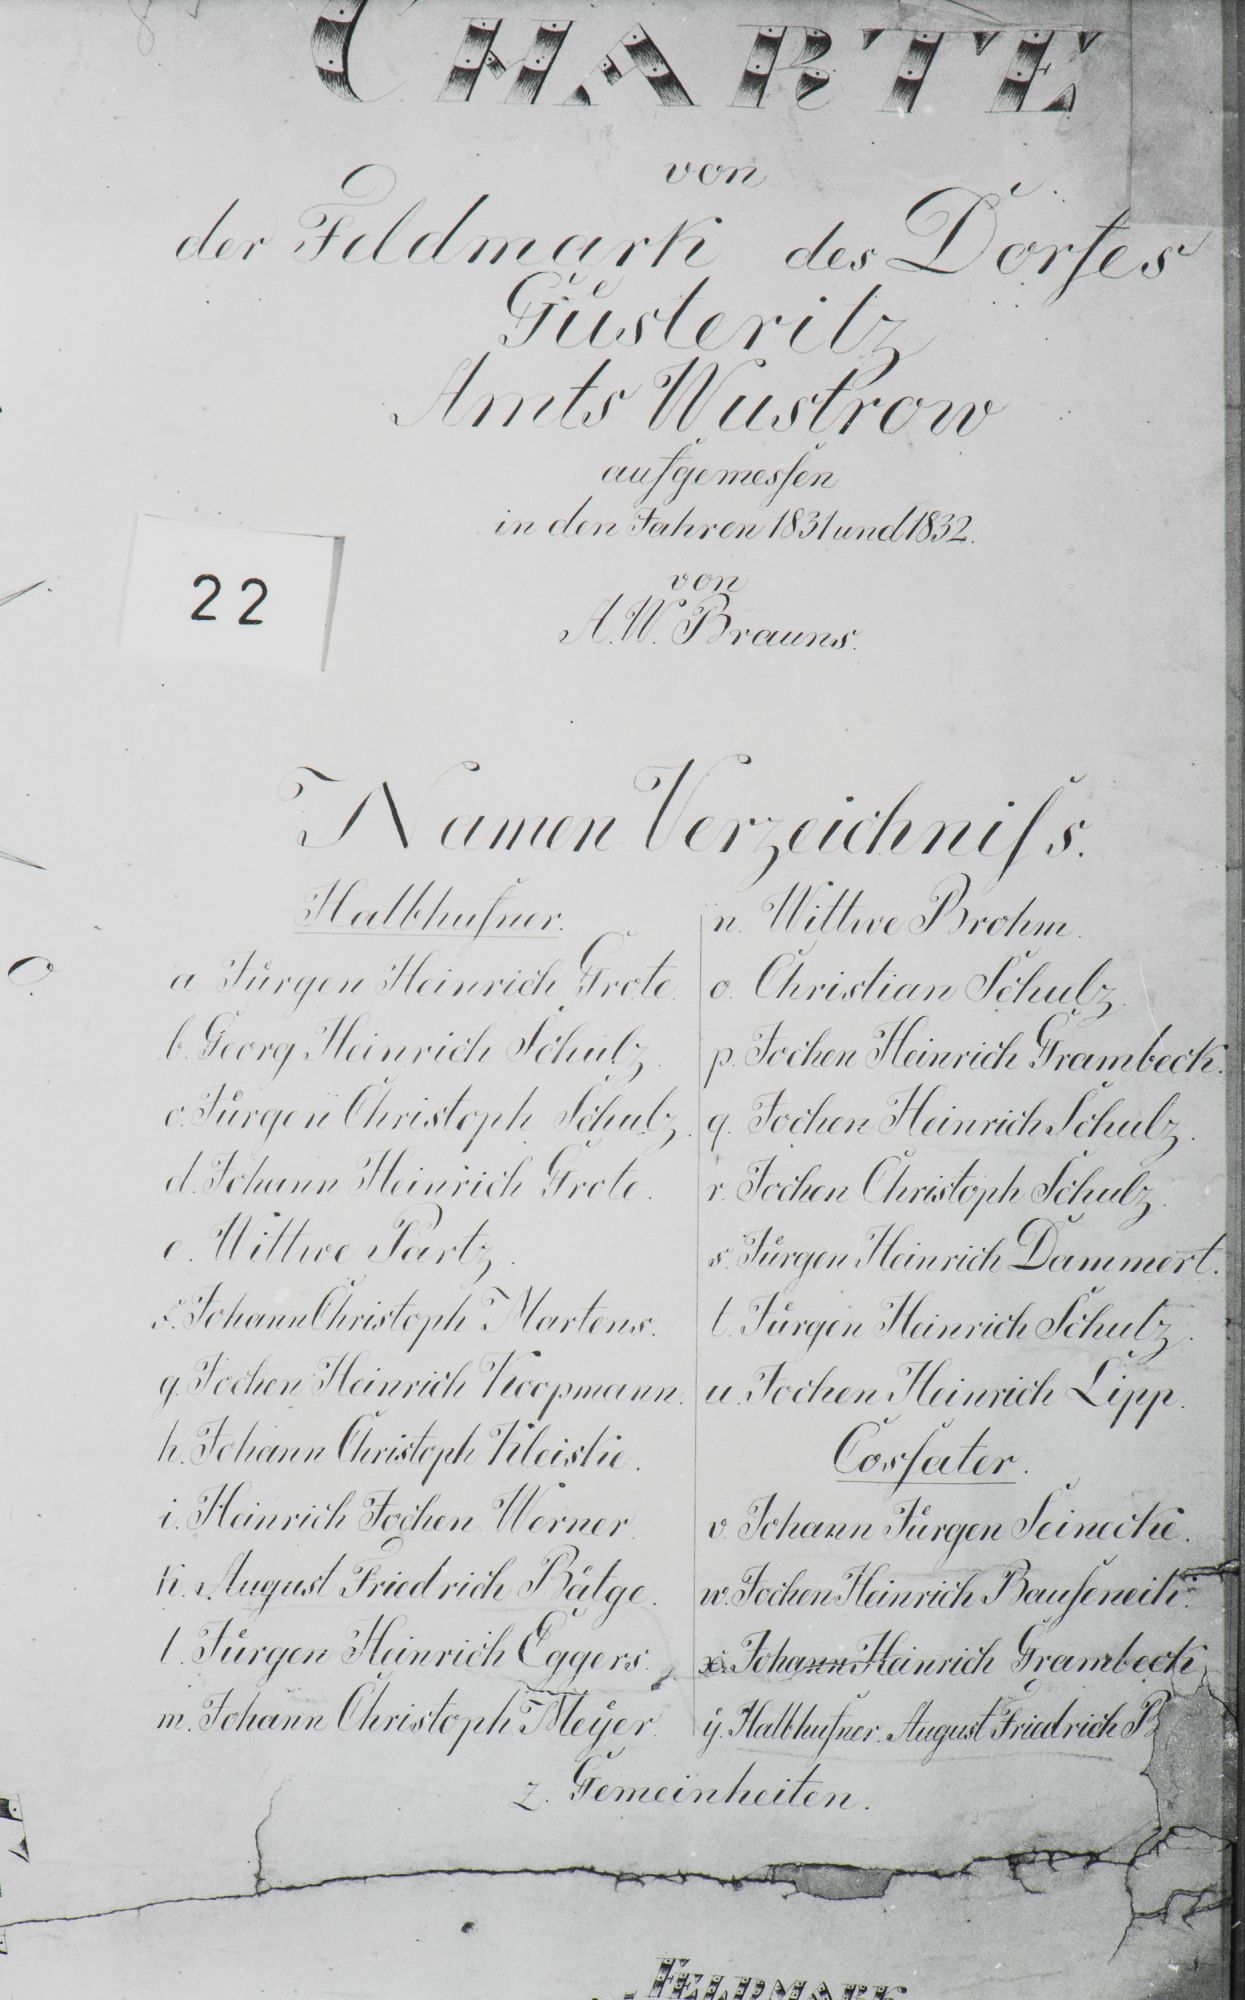 CHARTE
von
der Feldmark des Dorfes
Güsteritz
Amts Wustrow
aufgemessen
in den Jahren 1831 und 1832.
von
A. W. Brauns.
22
Namen Verzeichniss.
Halbhufner.
a. Jürgen Heinrich Grote.
b. Georg Heinrich Schulz.
c. Jürgen Christoph Schulz.
d. Johann Heinrich Grote.
e. Wittwe Partz.
f. Johann Christoph Martens.
g. Jochen Heinrich Koopmann.
h. Johann Christoph Kleiske.
i. Heinrich Jochen Werner.
k. August Friedrich Bätge.
l. Jürgen Heinrich Eggers.
m. Johann Christoph Meÿer.
n. Wittwe Brohm.
o. Christian Schulz.
p. Jochen Heinrich Grambeck.
q. Jochen Heinrich Schulz.
r. Jochen Christoph Schulz.
s. Jürgen Heinrich Dammert.
t. Jürgen Heinrich Schulz.
u. Jochen Heinrich Lipp.
Cossater.
v. Johann Jürgen Seinecke.
w. Jochen Heinrich Bauseneik.
x. Johann Heinrich Grambeck
ÿ. Halbhufner. August Friedrich B
z. Gemeinheiten.
FELDMARK